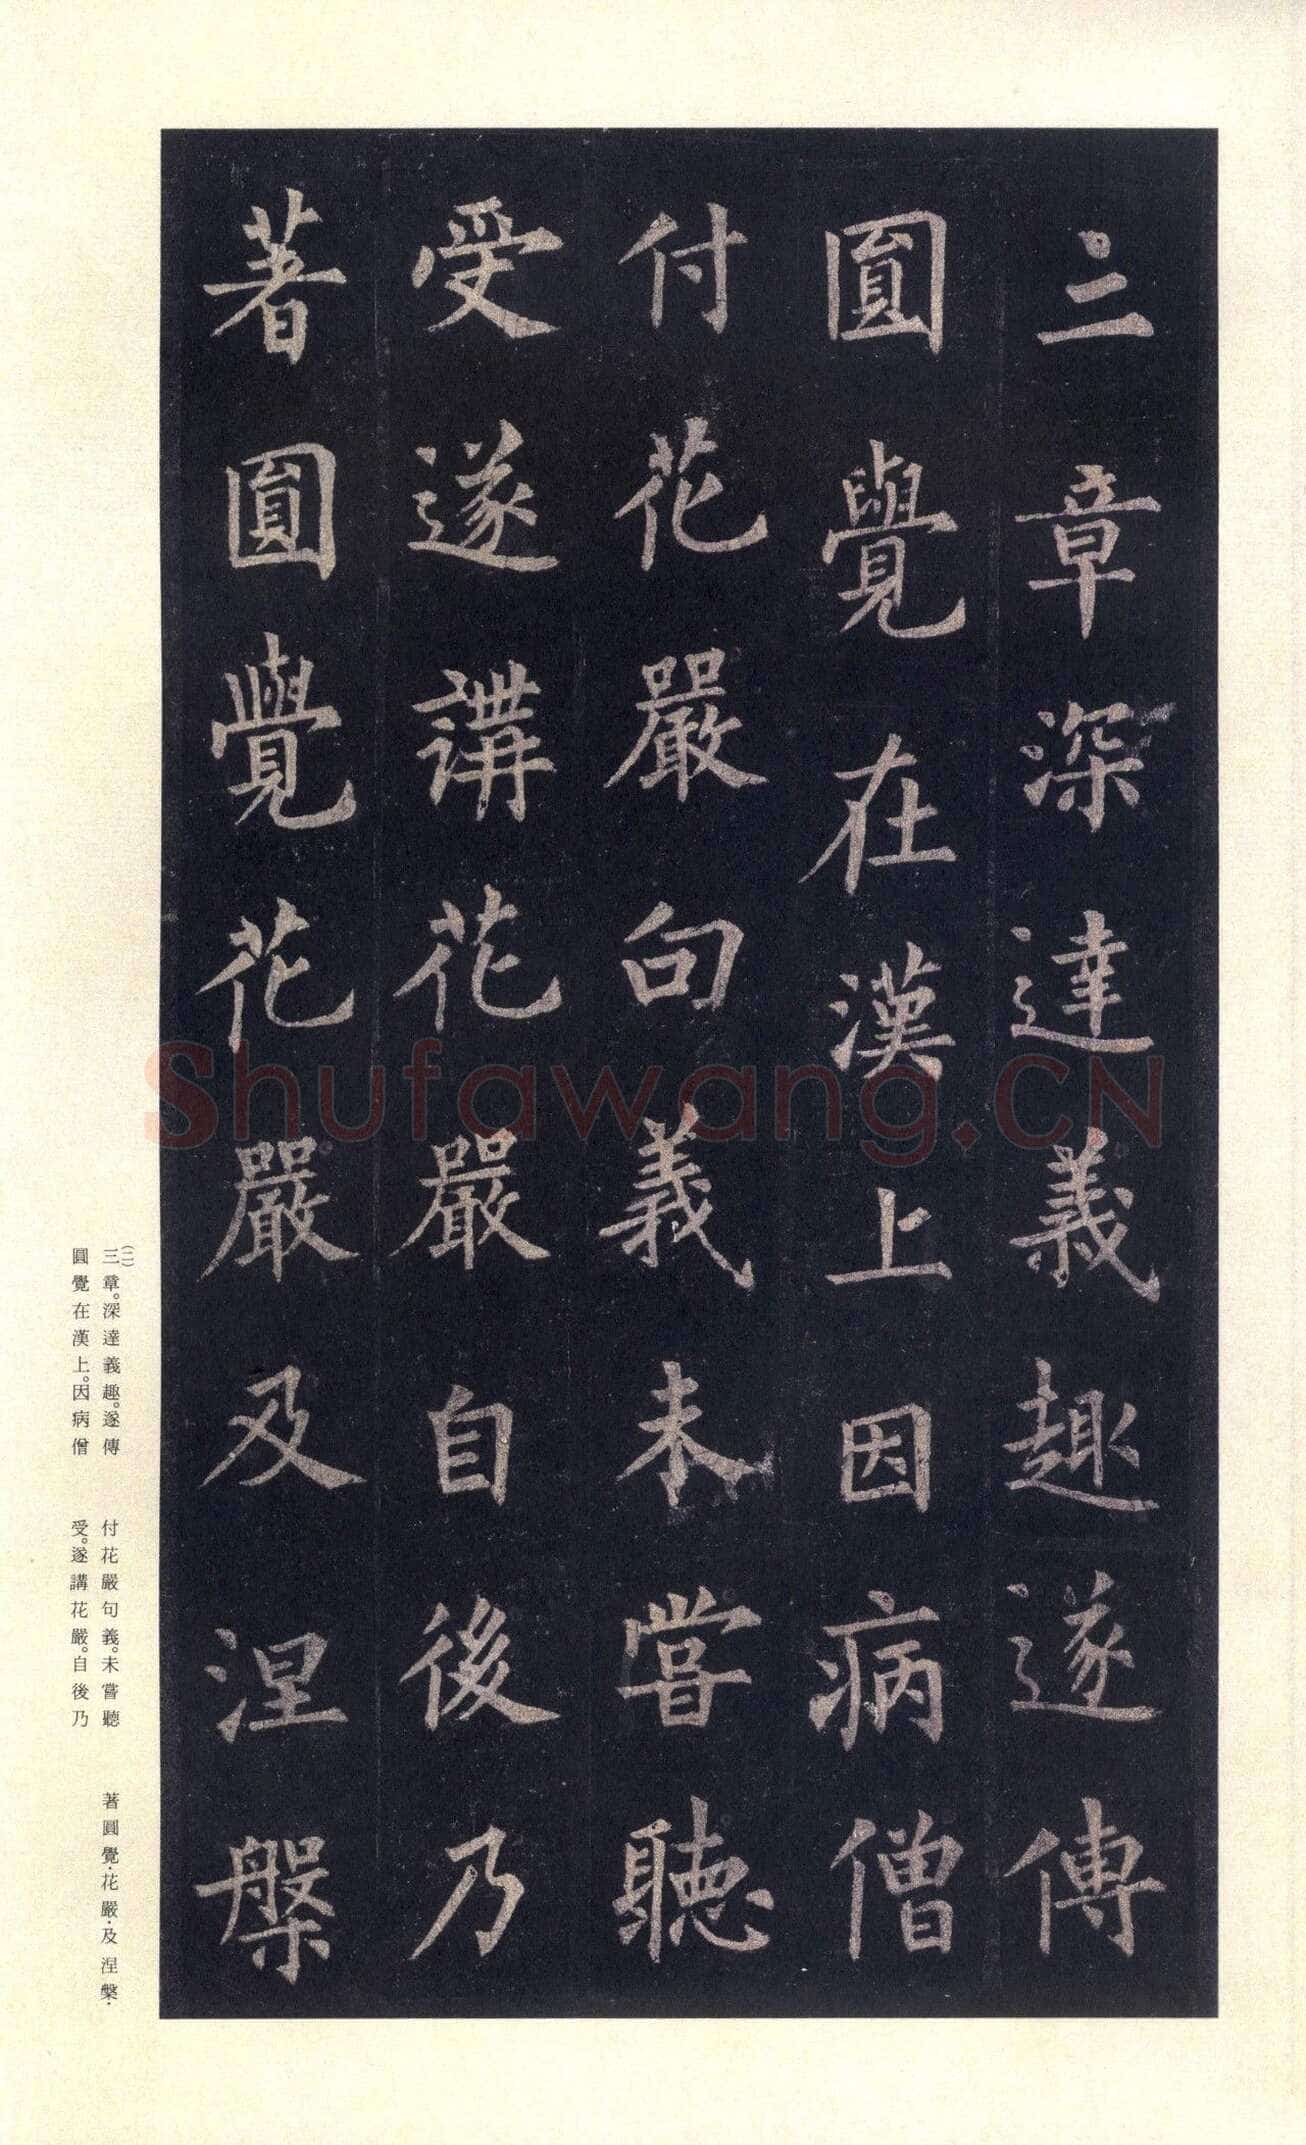 三章深達義趣遂傳
圓覺在漢上因病僧
付花嚴句義未嘗聽
受遂講花嚴自後乃
著圓覺花嚴及涅槃
(二)
三章。深達義趣。遂傳
圓覺在漢上。因病僧
付花嚴句義。未嘗聽
受。遂講花嚴。自後乃
著圓覺·花嚴·及涅槃·
Shufawang.CN